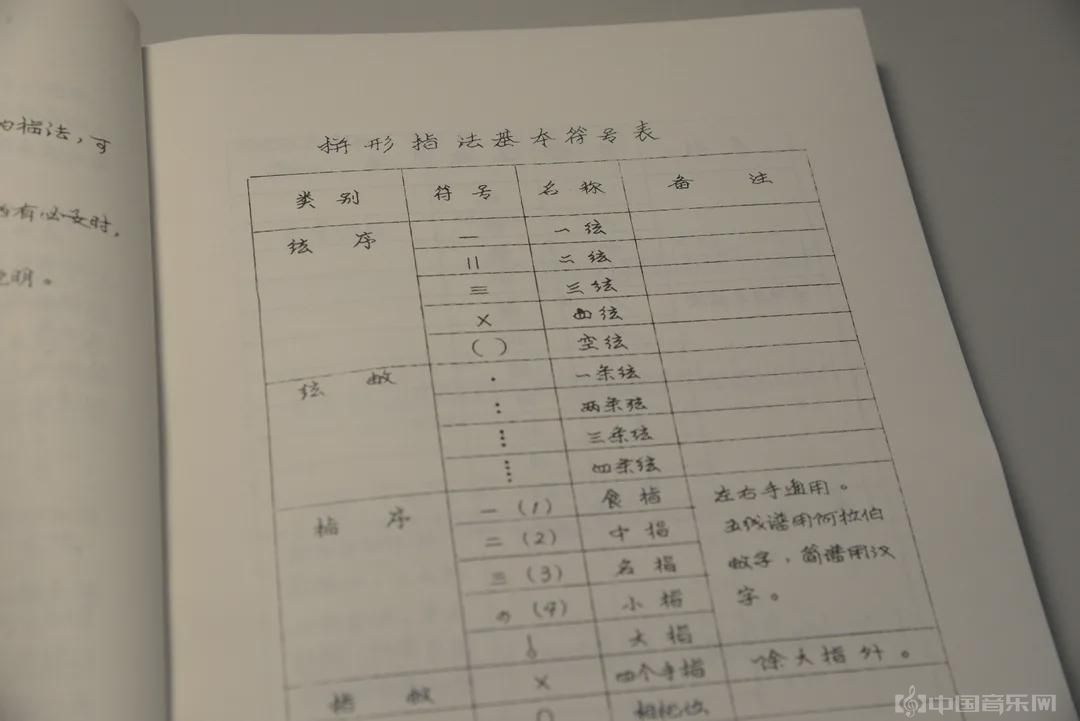 的指法，可
有必要时，
说明。
拼形指法基本符号表
类别 符号 名称 备注
弦序 一 一弦
|| 二弦
三 三弦
× 四弦
( ) 空弦
弦数 · 一条弦
: 两条弦
⋮ 三条弦
四条弦
指序 一(1) 食指 左右手通用。
二(2) 中指 五线谱用阿拉伯
三(3) 名指 数字，简谱用汉
(4) 小指 字。
大指
指数 × 四个手指 除大指外。
中国音乐网